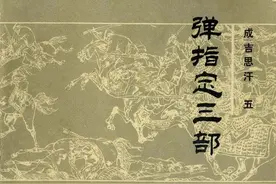 成吉思汗 五
弹指定三部